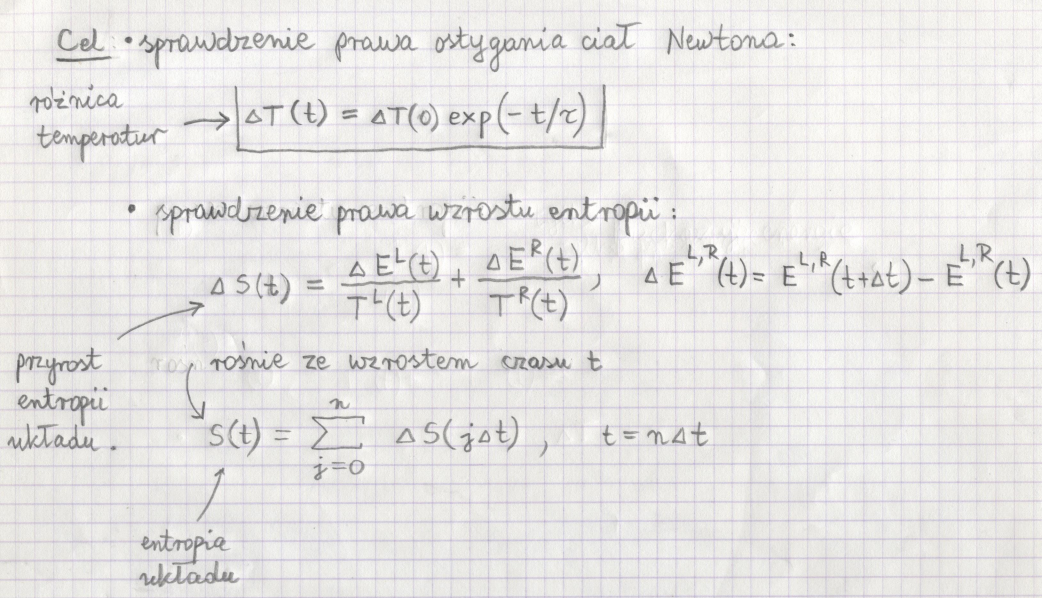 Cel • sprawdzenie prawa ostygania ciał Newtona:
różnica
temperatur → ΔT(t) = ΔT(0) exp(-t/τ)
• sprawdzenie prawa wzrostu entropii:
ΔS(t) = ΔE^L(t)/T^L(t) + ΔE^R(t)/T^R(t), ΔE^{L,R}(t) = E^{L,R}(t+Δt) - E^{L,R}(t)
przyrost
entropii
układu.
rośnie ze wzrostem czasu t
S(t) = ∑_{j=0}^{n} ΔS(jΔt), t = nΔt
entropia
układu